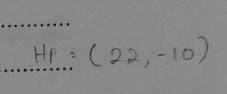 HP = (22, -10)